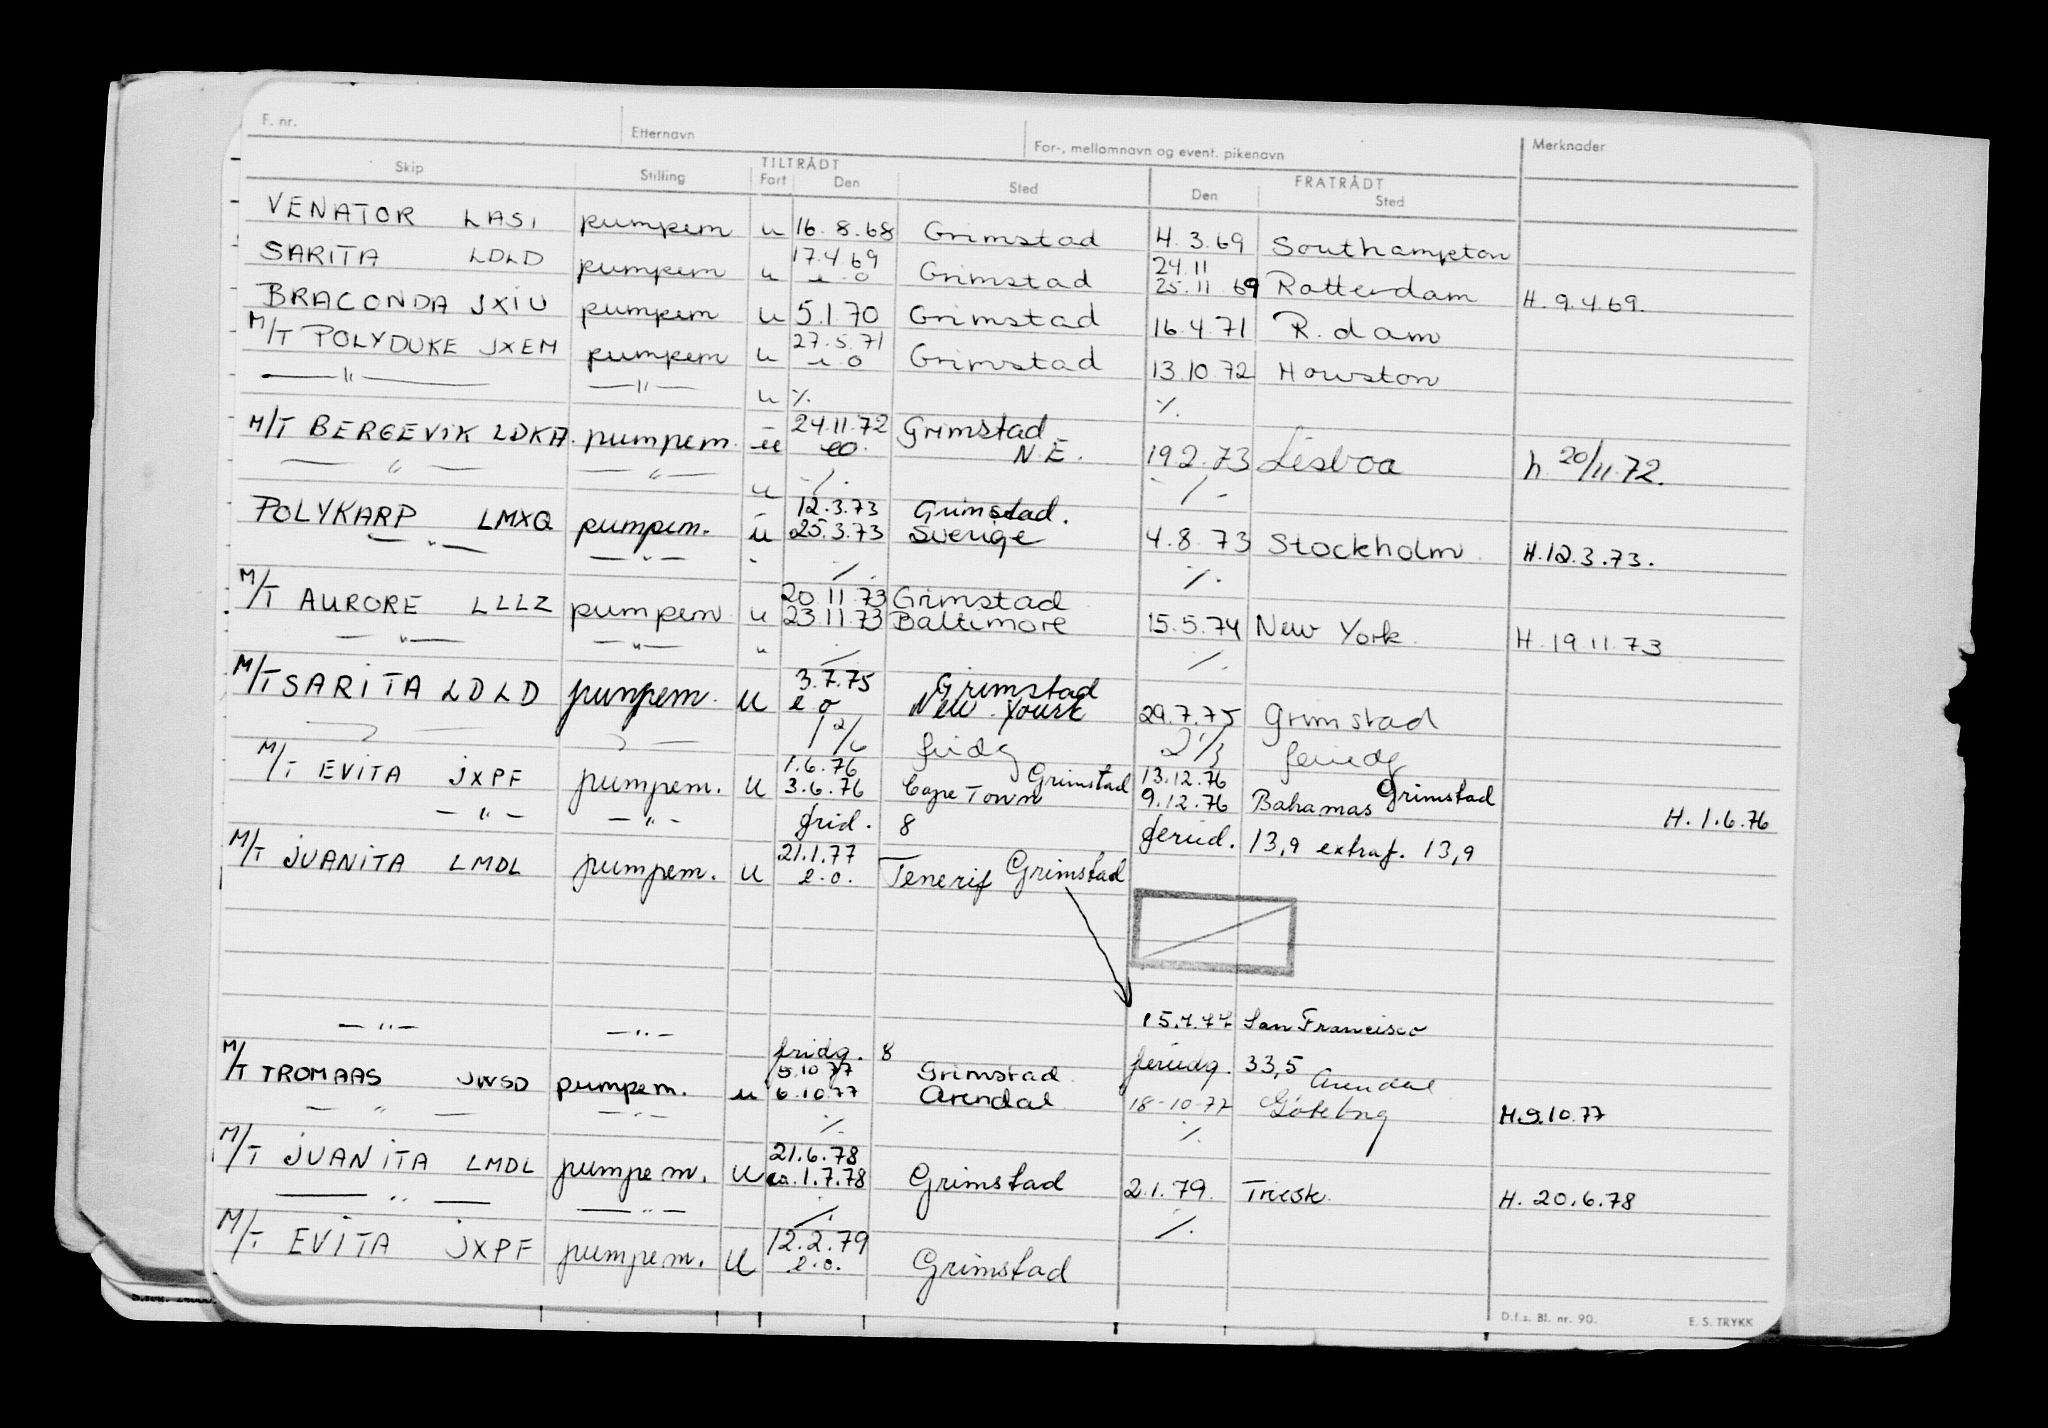 F. nr. Etternavn For-, mellomnavn og event. pikenavn Merknader
Skip Stilling TILTRÅDT Fart Den Sted FRATRÅDT Den Sted
VENATOR LASI pumpem u 16.8.68 Grimstad 4.3.69 Southampton
17.4.69 24.11
SARITA LDLD pumpem u e.o Grimstad 25.11 69 Rotterdam H. 9.4.69.
BRACONDA JXIU pumpem u 5.1.70 Grimstad 16.4.71 R.dam
27.5.71
M/T POLYDUKE JXEM pumpem u e.o Grimstad 13.10.72 Houston
— " — — " — u ٪. ٪.
24.11.72 Grimstad
M/T BERGEVIK LDKA. pumpem. u eo. N.E. 19.2.73 Lisboa h. 20/11.72.
— " — — " — u -/. -/-
12.3.73 Grimstad.
POLYKARP LMXQ pumpem. u 25.3.73 Sverige 4.8.73 Stockholm H.12.3.73.
— " — — " — " ٪. ٪.
20.11.73 Grimstad
M/T AURORE LLLZ pumpem u 23.11.73 Baltimore 15.5.74 New York. H.19.11.73
— " — — " — " ٪ ٪.
3.7.75 Grimstad
M/T SARITA LDLD pumpem. u e o New Yourk 29.7.75 Grimstad
fridg feriedg
1.6.76 Grimstad 13.12.76 Grimstad
M/T EVITA JXPF pumpem. u 3.6.76 Cape Town 9.12.76 Bahamas H.1.6.76
— " — — " — frid. 8 feried. 13,9 extraf. 13,9
21.1.77
M/T JUANITA LMDL pumpem. u e.o. Tenerif Grimstad
— " — — " — 15.7.77 San Francisco
fridg. 8 feriedg. 33,5
5.10.77 Grimstad Arendal
M/T TROMAAS JWSD pumpem. u 6.10.77 Arendal 18-10-77 Gøtebrg H.3.10.77
— " — — " — ٪. ٪.
21.6.78
M/T JUANITA LMDL pumpem. u ca.1.7.78 Grimstad 2.1.79. Triest. H. 20.6.78
— " — — " — ٪. ٪.
12.2.79
M/T EVITA JXPF pumpem. u e.o. Grimstad
D.f.s. Bl. nr. 90. E. S. TRYKK